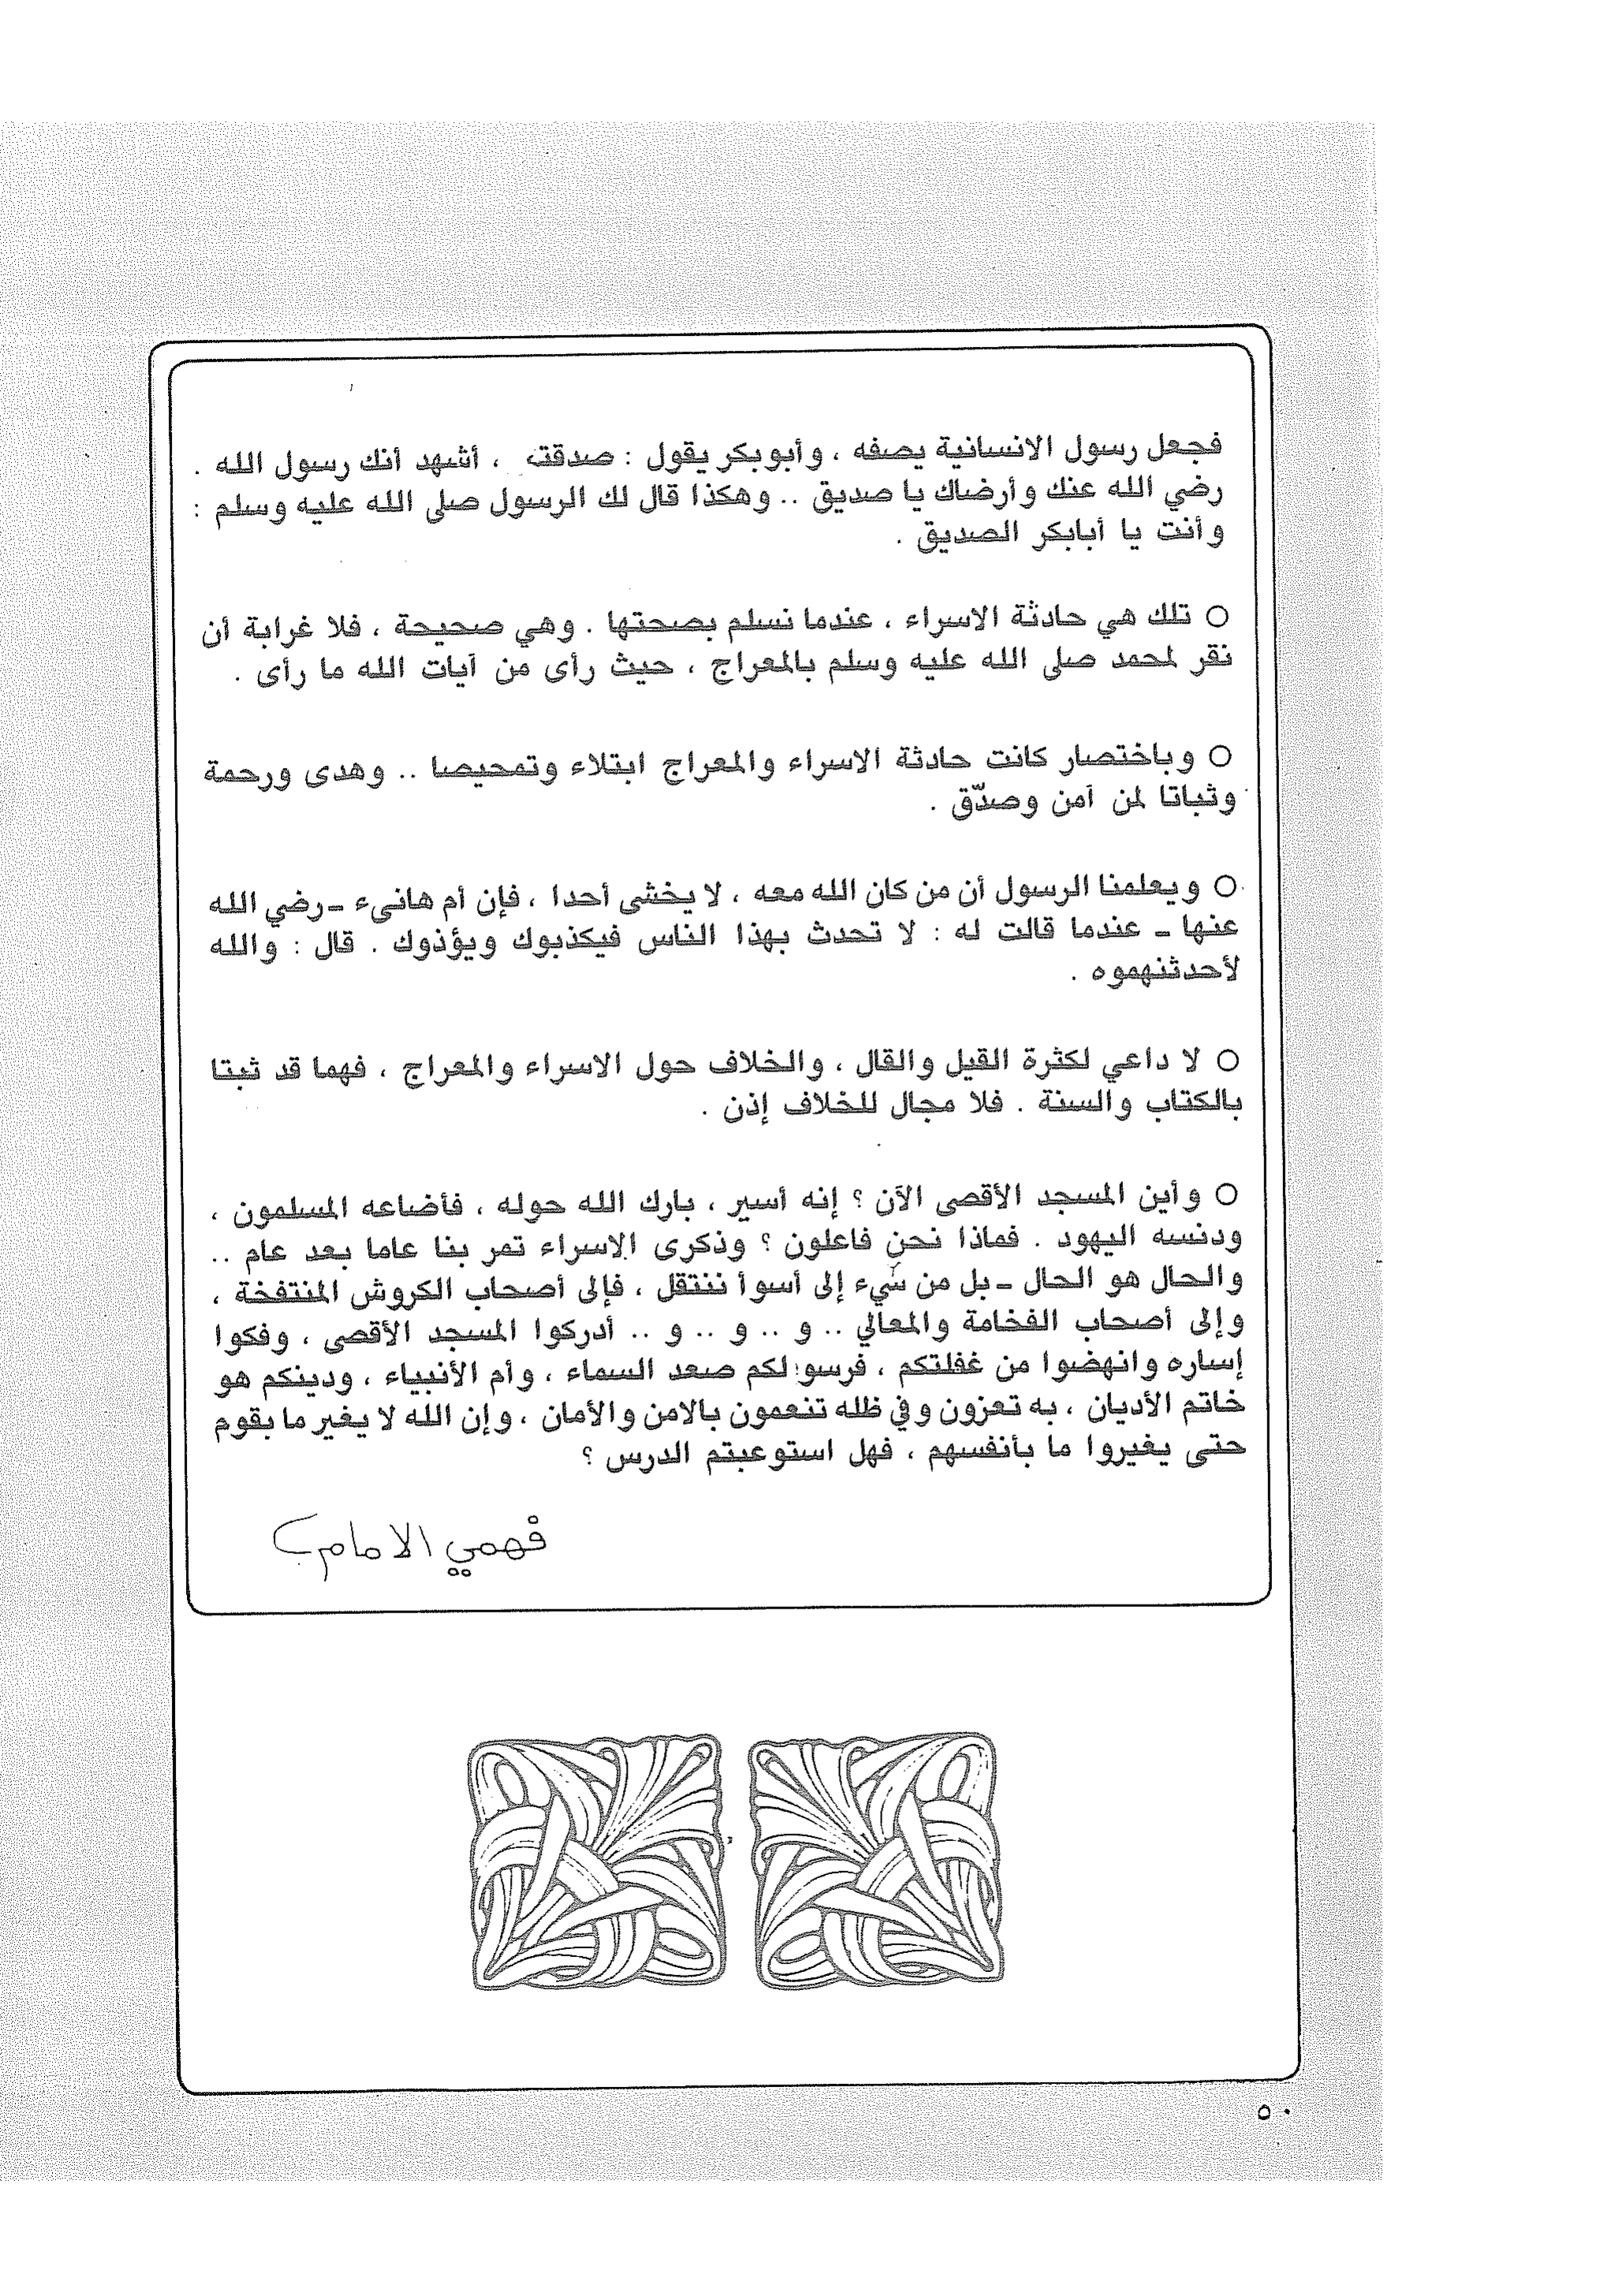 فجعل رسول الانسانية يصفه ، وأبو بكر يقول : صدقت ، أشهد أنك رسول الله .
رضي الله عنك وأرضاك يا صديق .. وهكذا قال لك الرسول صلى الله عليه وسلم :
وأنت يا أبابكر الصديق .
○ تلك هي حادثة الاسراء ، عندما نسلم بصحتها . وهي صحيحة ، فلا غرابة أن
نقر لمحمد صلى الله عليه وسلم بالمعراج ، حيث رأى من آيات الله ما رأى .
○ وباختصار كانت حادثة الاسراء والمعراج ابتلاء وتمحيصا .. وهدى ورحمة
وثباتا لمن آمن وصدّق .
○ ويعلمنا الرسول أن من كان الله معه ، لا يخشى أحدا ، فإن أم هانىء ـ رضي الله
عنها ـ عندما قالت له : لا تحدث بهذا الناس فيكذبوك ويؤذوك . قال : والله
لأحدثنهموه .
○ لا داعي لكثرة القيل والقال ، والخلاف حول الاسراء والمعراج ، فهما قد ثبتا
بالكتاب والسنة . فلا مجال للخلاف إذن .
○ وأين المسجد الأقصى الآن ؟ إنه أسير ، بارك الله حوله ، فأضاعه المسلمون ،
ودنسه اليهود . فماذا نحن فاعلون ؟ وذكرى الإسراء تمر بنا عاما بعد عام ..
والحال هو الحال ـ بل من سيء إلى أسوأ ننتقل ، فإلى أصحاب الكروش المنتفخة ،
وإلى أصحاب الفخامة والمعالي .. و .. و .. و .. أدركوا المسجد الأقصى ، وفكوا
إساره وانهضوا من غفلتكم ، فرسولكم صعد السماء ، وأم الأنبياء ، ودينكم هو
خاتم الأديان ، به تعزون وفي ظله تنعمون بالامن والأمان ، وإن الله لا يغير ما بقوم
حتى يغيروا ما بأنفسهم ، فهل استوعبتم الدرس ؟
فهمي الامام
٥٠